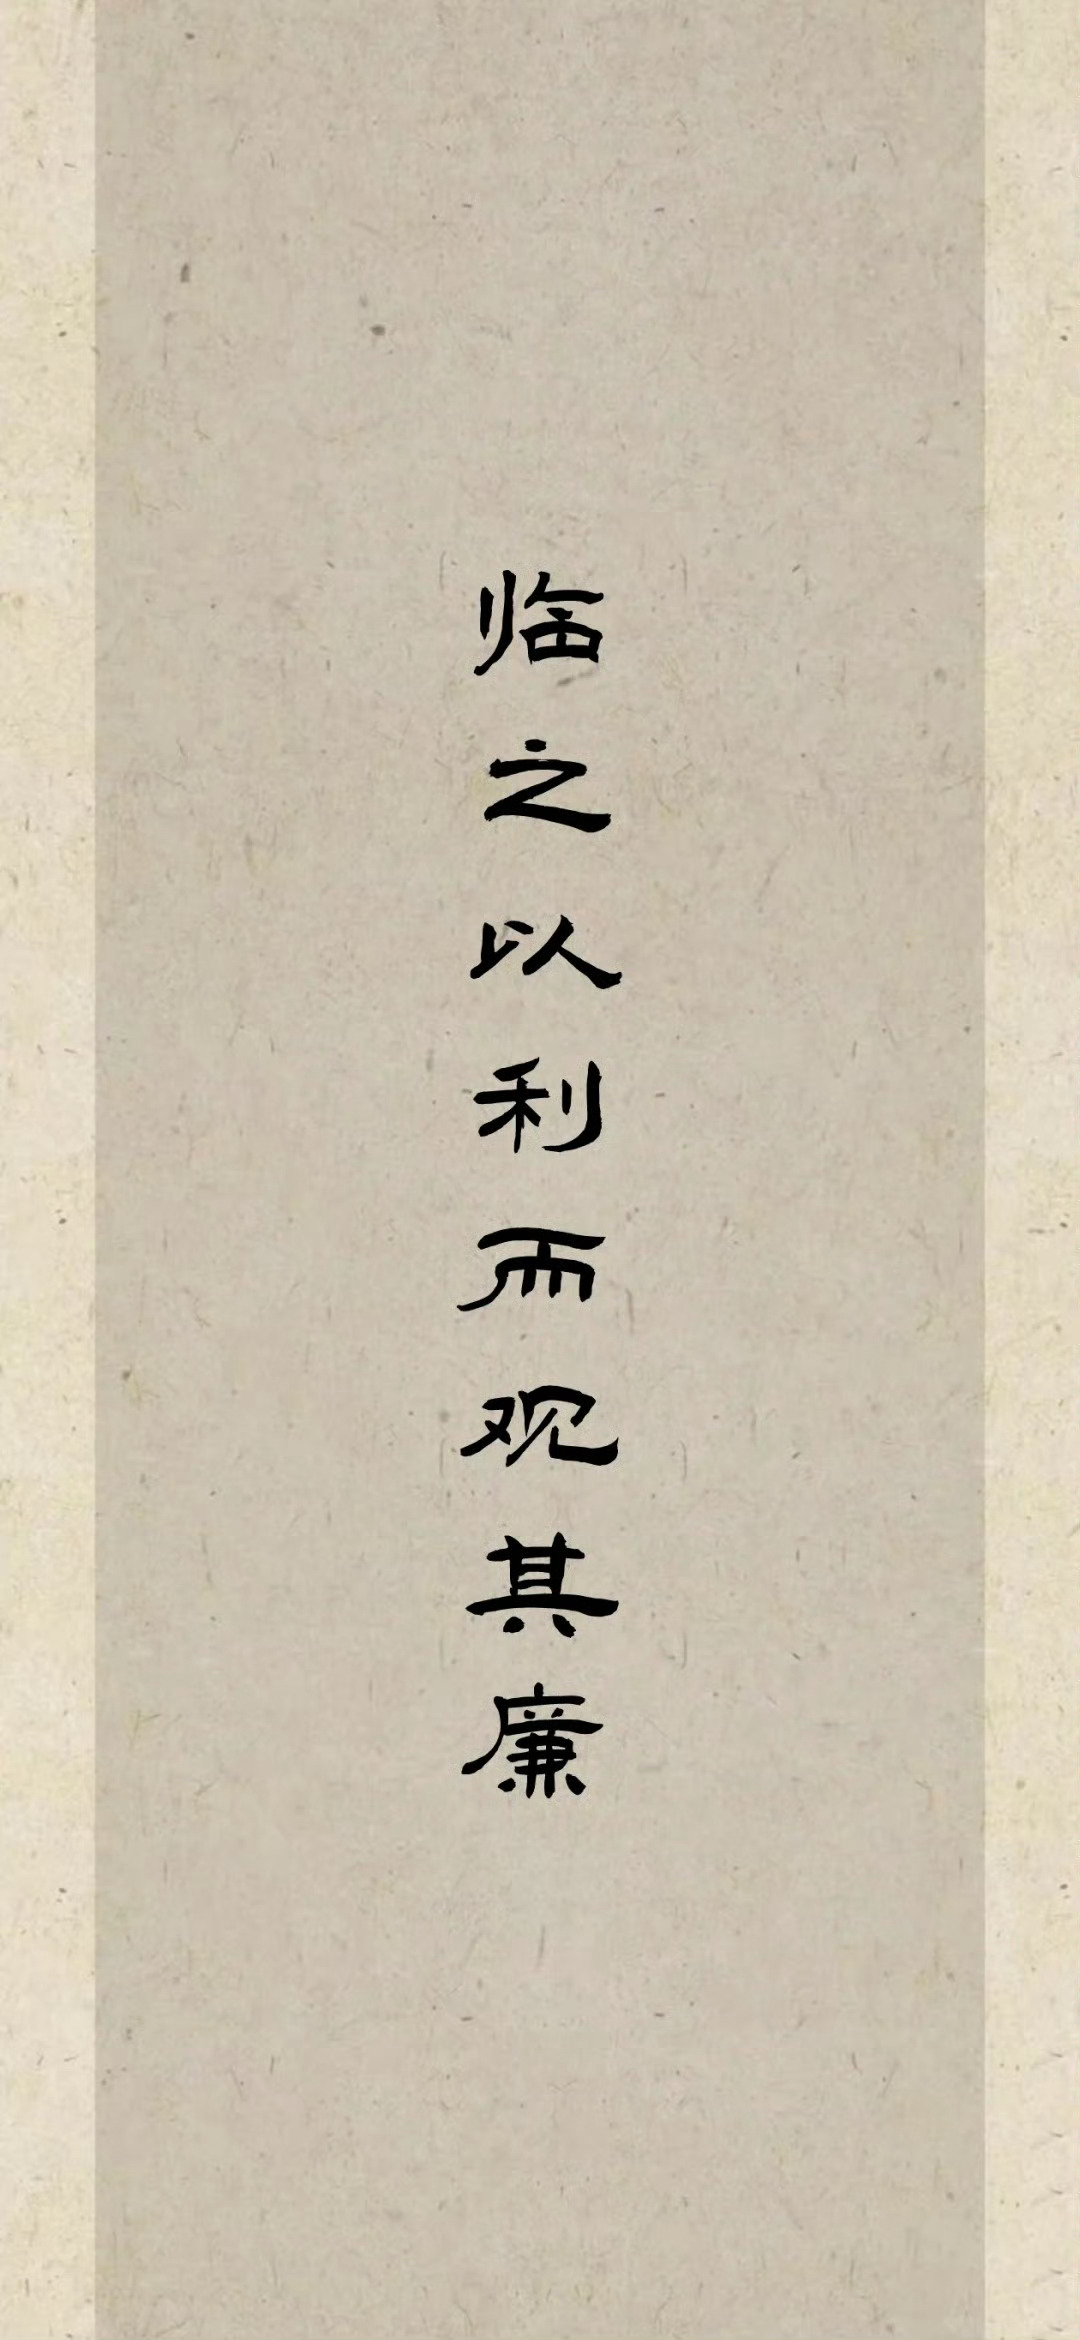 临之以利而观其廉